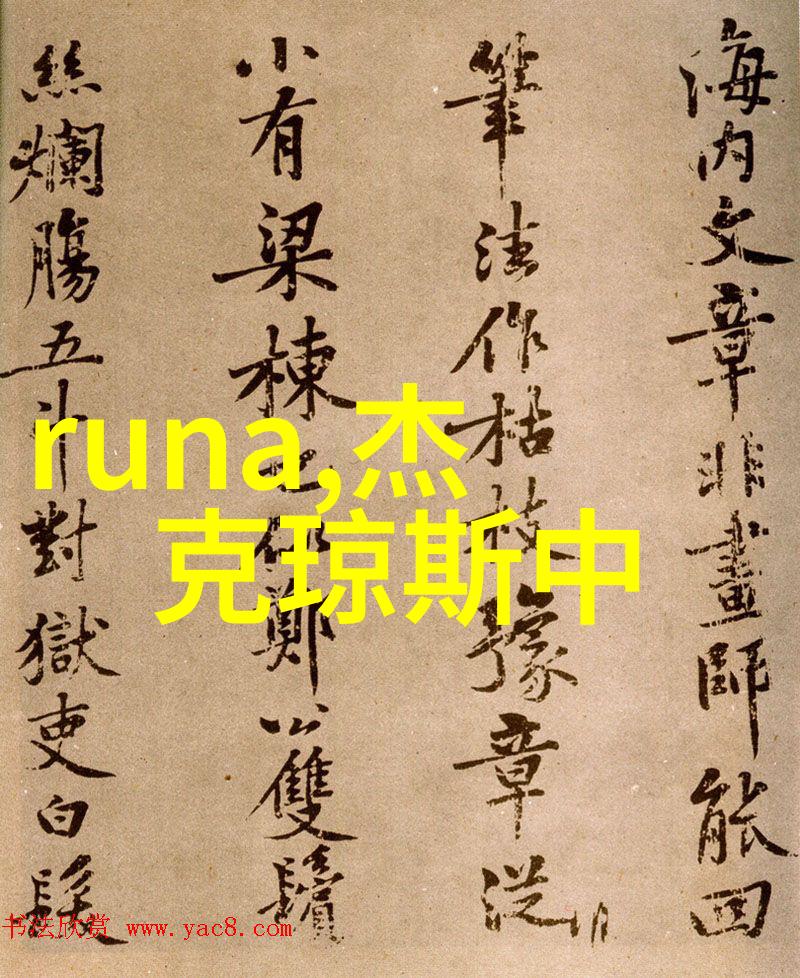 海内文章非畫師能回
筆法作枯枝豫章從
小有梁棟也似鄭公雙鬢
絲爛腸五斗對獄吏白髮
runa,杰
克琼斯中
书法欣赏 www.yac8.com